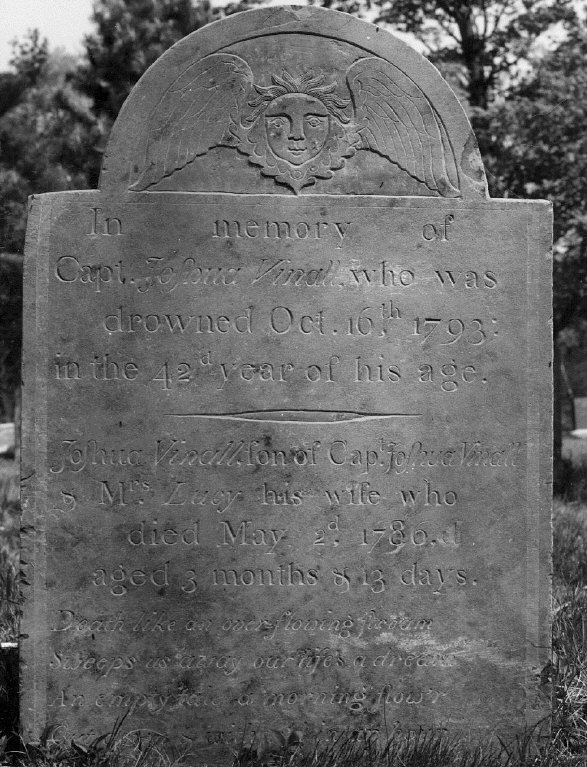 In memory of
Capt. Joſhua Vinall, who was
drowned Oct. 16th 1793;
in the 42d year of his age.
Joſhua Vinall, ſon of Capt. Joſhua Vinall
& Mrs. Lucy his wife who
died May 2d. 1786.
aged 3 months & 13 days.
Death like an over-flowing ſtream
Sweeps us away our life's a dream
An empty tale a morning flow'r
Cut down